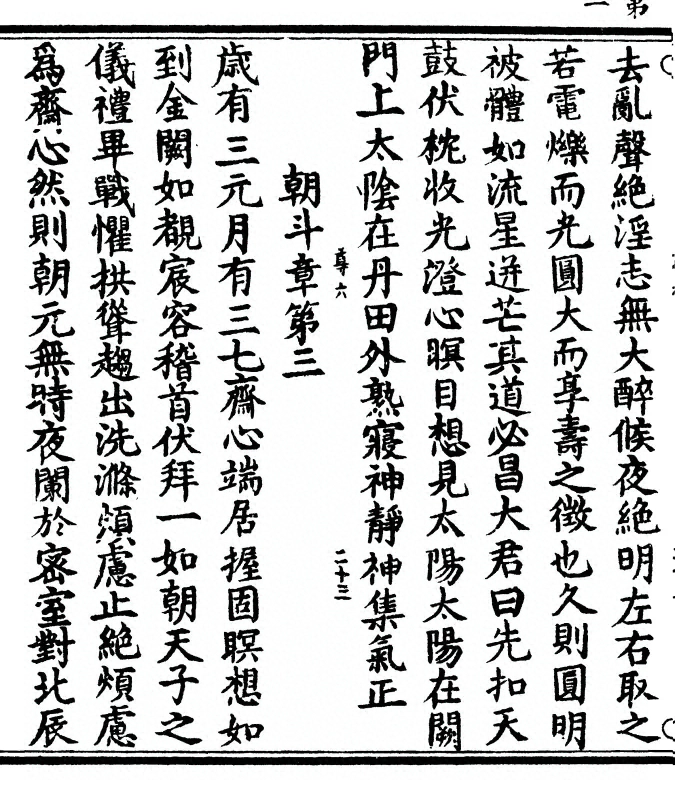 去亂聲絶淫志無大醉候夜絶明左右取之
若電爍而光圓大而享壽之徵也久則圓明
被體如流星迸芒其道必昌大君曰先扣天
鼓伏枕收光澄心瞑目想見太陽太陽在闕
門上太陰在丹田外熟寢神靜神集氣正
尊六 二十三
朝斗章第三
歲有三元月有三七齋心端居握固瞑想如
到金闕如覩宸容稽首伏拜一如朝天子之
儀禮畢戰懼拱聳趨出洗滌煩慮止絶煩慮
爲齋心然則朝元無時夜闌於密室對北辰